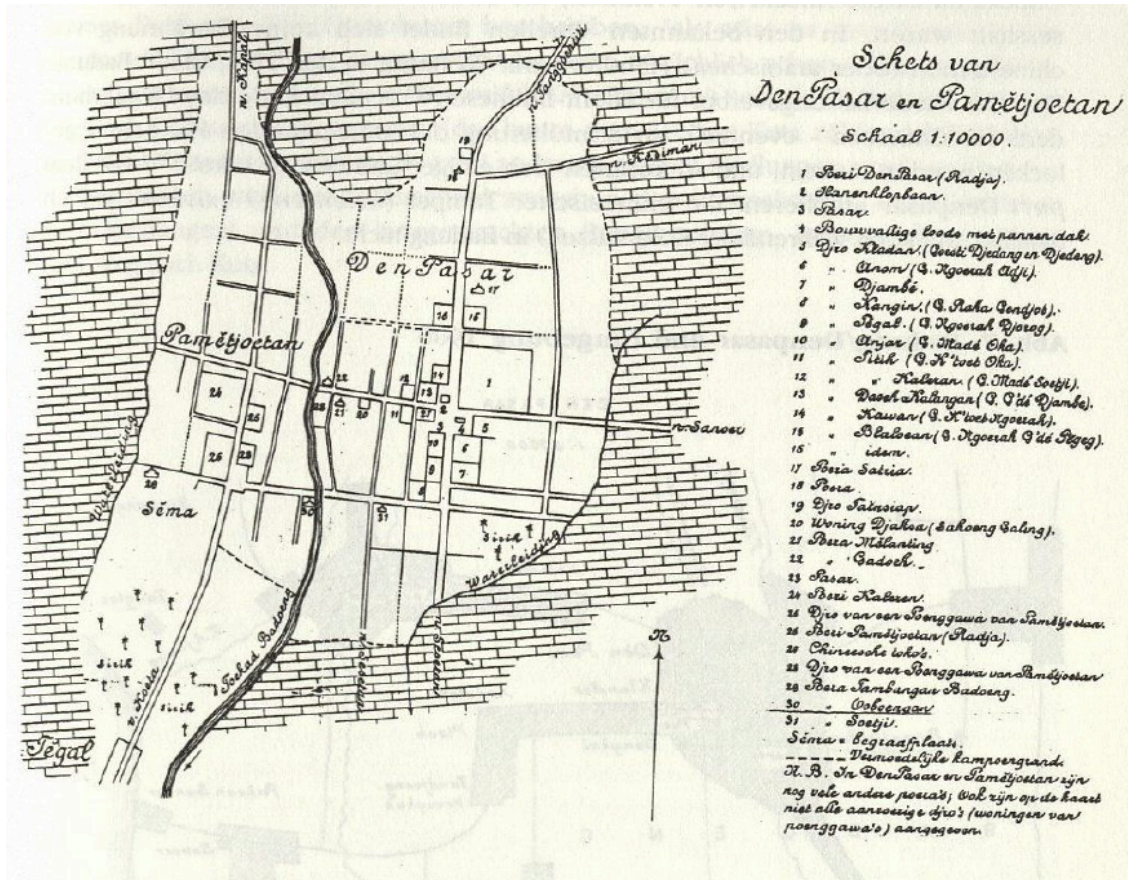 Schets van
Den Pasar en Pamĕtjoetan
Schaal 1:10000.
1 Poeri Den Pasar (Radja).
2 Hanenklopbaan.
3 Pasar.
4 Bouwvallige loods met pannen dak.
5 Djro Kladan. (Goesti Djedang en Djedeng).
6 " Anom (G. Ngoerah Adji).
7 " Djambé.
8 " Kangin. (G. Raka Gendjot).
9 " Pgal. (G. Ngoerah Djorog).
10 " Anjar (G. Madé Oka).
11 " Titih (G. K'toet Oka).
12 " " Kaleran. (G. Madé Soetji).
13 " Dasoh Kalangan (G. G'dé Djambe).
14 " Kawan (G. K'toet Ngoerah).
15 " Blaloean (G. Ngoerah G'dé Pegeg).
16 " idem.
17 Poera Satria.
18 Poera.
19 Djro Tatasiap.
20 Woning Djaksa
21 Poera Mĕlanting
22 " Gadoeh.
23 Pasar.
24 Poeri Kaleran.
25 Djro van een Poenggawa van Pamĕtjoetan.
26 Poeri Pamĕtjoetan (Radja).
28 Chineesche toko's.
28 Djro van een Poenggawa van Pamĕtjoetan
29 Poera Tambangan Badoeng.
30 "
31 " Soetji.
Sĕma = begraafplaats.
Vermoedelijke kampoengrand.
N.B. In Den Pasar en Pamĕtjoetan zijn
nog vele andere poera's; Ook zijn op de kaart
niet alle aanwezige djro's (woningen van
poenggawa's) aangegeven.
n. Kapal
n. Kesiman
Den Pasar
Pamĕtjoetan
n. Sanoer
Waterleiding
Sĕma
Sirih
Waterleiding
Sirih
Sirih
Toekad Badoeng
n. Koeta
Tĕgal
N
19
18
17
16
15
14
1
22
12
13
2
24
23
21
20
11
27
3
4
5
26
10
6
25
28
9
7
29
8
30
31